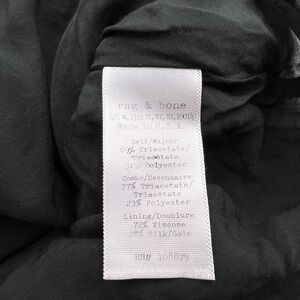 rag & bone
425 W. 13th St, NY, NY, 10014
Made in U.S.A.
Self/Majeur
69% Triacetate/
Triacetate
31% Polyester
Combo/Secondaire
77% Triacetate/
Triacétate
23% Polyester
Lining/Doublure
72% Viscose
28% Silk/Soie
RN# 108879